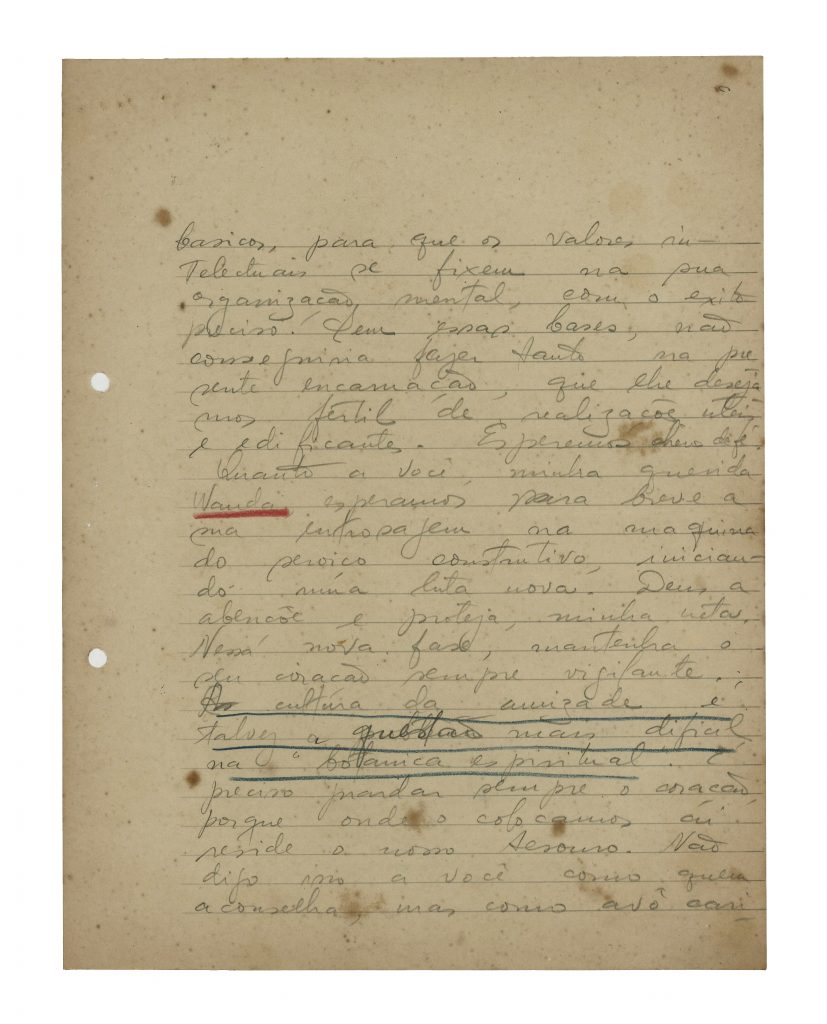 basicos, para que os valores in-
telectuais se fixem na sua
organização mental, com o exito
preciso. Sem essas bases, não
conseguiria fazer tanto na pre
sente encarnação, que lhe deseja
mos fértil de realizações uteis
e edificantes. Esperemos cheios de fé.
Quanto a você, minha querida
Wanda esperamos para breve a
sua entrosagem na maquina
do serviço construtivo, inician-
do numa luta nova. Deus a
abençõe e proteja, minha neta.
Nessa nova fase, mantenha o
seu coração sempre vigilante.
A cultura da amizade é
talvez a questão mais dificil
na "botanica espiritual". É
preciso guardar sempre o coração,
porque onde o colocamos ái
reside o nosso tesouro. Não
digo isso a você como quem
aconselha, mas como avô cari-